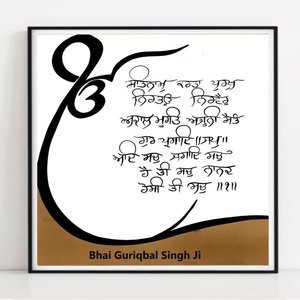 ੴ
ਸਤਿਨਾਮੁ ਕਰਤਾ ਪੁਰਖੁ
ਨਿਰਭਉ ਨਿਰਵੈਰੁ
ਅਕਾਲ ਮੂਰਤਿ ਅਜੂਨੀ ਸੈਭੰ
ਗੁਰ ਪ੍ਰਸਾਦਿ ॥ਜਪੁ॥
ਆਦਿ ਸਚੁ ਜੁਗਾਦਿ ਸਚੁ
ਹੈ ਭੀ ਸਚੁ ਨਾਨਕ
ਹੋਸੀ ਭੀ ਸਚੁ ॥੧॥
Bhai Guriqbal Singh Ji